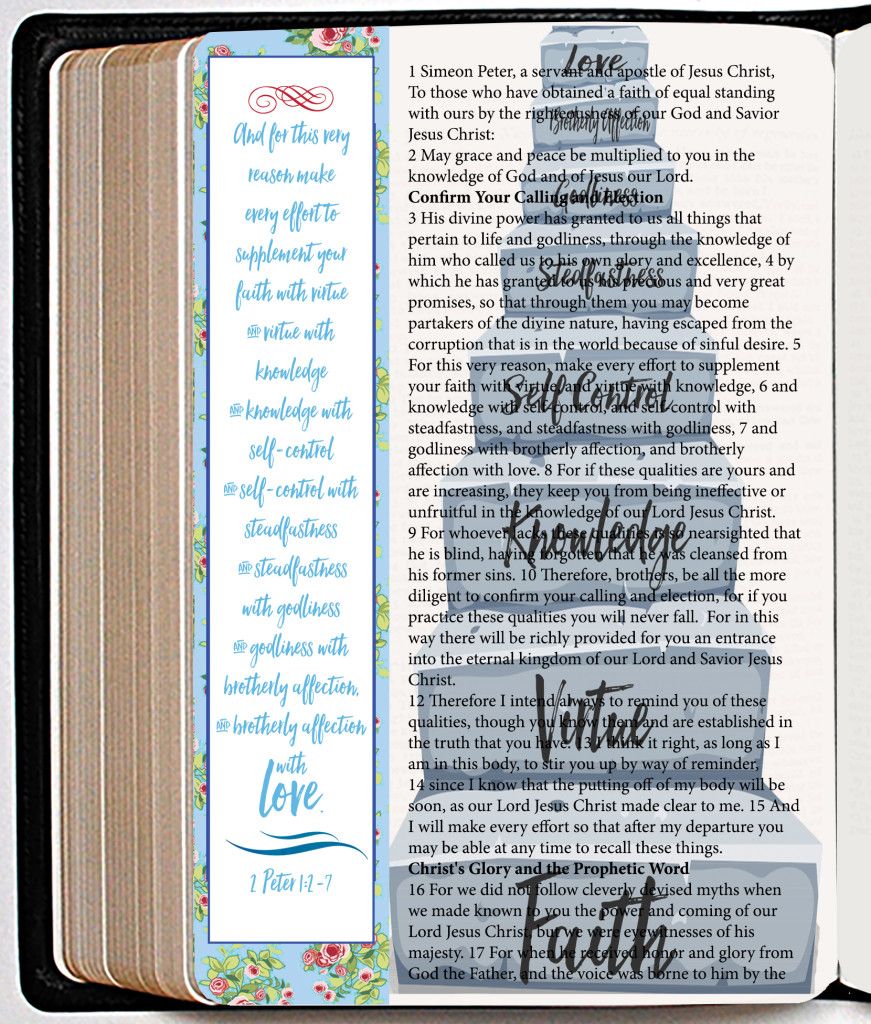 And for this very
reason make
every effort to
supplement your
faith with virtue
AND virtue with
knowledge
AND knowledge with
self-control
AND self-control with
steadfastness
AND steadfastness
with godliness
AND godliness with
brotherly affection,
AND brotherly affection
with
Love.
2 Peter 1:2-7
1 Simeon Peter, a servant and apostle of Jesus Christ,
To those who have obtained a faith of equal standing
with ours by the righteousness of our God and Savior
Jesus Christ:
2 May grace and peace be multiplied to you in the
knowledge of God and of Jesus our Lord.
Confirm Your Calling and Election
3 His divine power has granted to us all things that
pertain to life and godliness, through the knowledge of
him who called us to his own glory and excellence, 4 by
which he has granted to us his precious and very great
promises, so that through them you may become
partakers of the divine nature, having escaped from the
corruption that is in the world because of sinful desire. 5
For this very reason, make every effort to supplement
your faith with virtue, and virtue with knowledge, 6 and
knowledge with self-control, and self-control with
steadfastness, and steadfastness with godliness, 7 and
godliness with brotherly affection, and brotherly
affection with love. 8 For if these qualities are yours and
are increasing, they keep you from being ineffective or
unfruitful in the knowledge of our Lord Jesus Christ.
9 For whoever lacks these qualities is so nearsighted that
he is blind, having forgotten that he was cleansed from
his former sins. 10 Therefore, brothers, be all the more
diligent to confirm your calling and election, for if you
practice these qualities you will never fall. For in this
way there will be richly provided for you an entrance
into the eternal kingdom of our Lord and Savior Jesus
Christ.
12 Therefore I intend always to remind you of these
qualities, though you know them and are established in
the truth that you have. 13 I think it right, as long as I
am in this body, to stir you up by way of reminder,
14 since I know that the putting off of my body will be
soon, as our Lord Jesus Christ made clear to me. 15 And
I will make every effort so that after my departure you
may be able at any time to recall these things.
Christ's Glory and the Prophetic Word
16 For we did not follow cleverly devised myths when
we made known to you the power and coming of our
Lord Jesus Christ, but we were eyewitnesses of his
majesty. 17 For when he received honor and glory from
God the Father, and the voice was borne to him by the
Love
Brotherly Affection
Godliness
Stedfastness
Self Control
Knowledge
Virtue
Faith